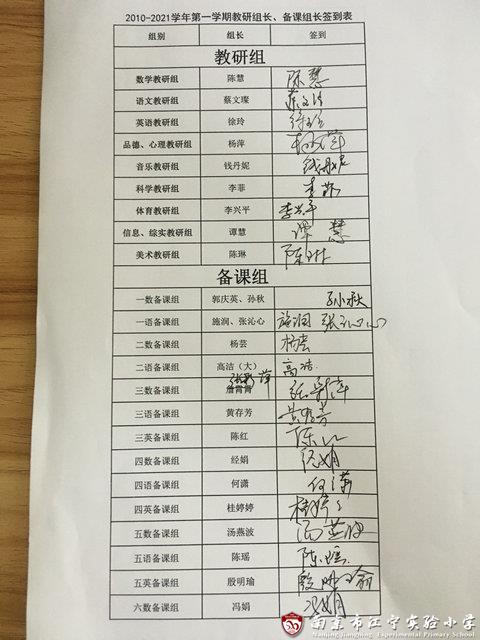 2010-2021学年第一学期教研组长、备课组长签到表
组别 组长 签到
教研组
数学教研组 陈慧 陈慧
语文教研组 蔡文璨
英语教研组 徐玲 徐玲
品德、心理教研组 杨萍 杨萍
音乐教研组 钱丹妮 钱丹妮
科学教研组 李菲 李菲
体育教研组 李兴平 李兴平
信息、综实教研组 谭慧 谭慧
美术教研组 陈琳 陈琳
备课组
一数备课组 郭庆英、孙秋 孙小秋
一语备课组 施润、张沁心 施润 张沁心
二数备课组 杨芸 杨芸
二语备课组 高洁（大） 高洁
三数备课组 詹青青
三语备课组 黄存芳 黄存芳
三英备课组 陈红 陈红
四数备课组 经娟 经娟
四语备课组 何潇 何潇
四英备课组 桂婷婷 桂婷婷
五数备课组 汤燕波 汤燕波
五语备课组 陈瑶 陈瑶
五英备课组 殷明瑜 殷明瑜
六数备课组 冯娟 冯娟
南京市江宁实验小学
Nanjing Jiangning Experimental Primary School